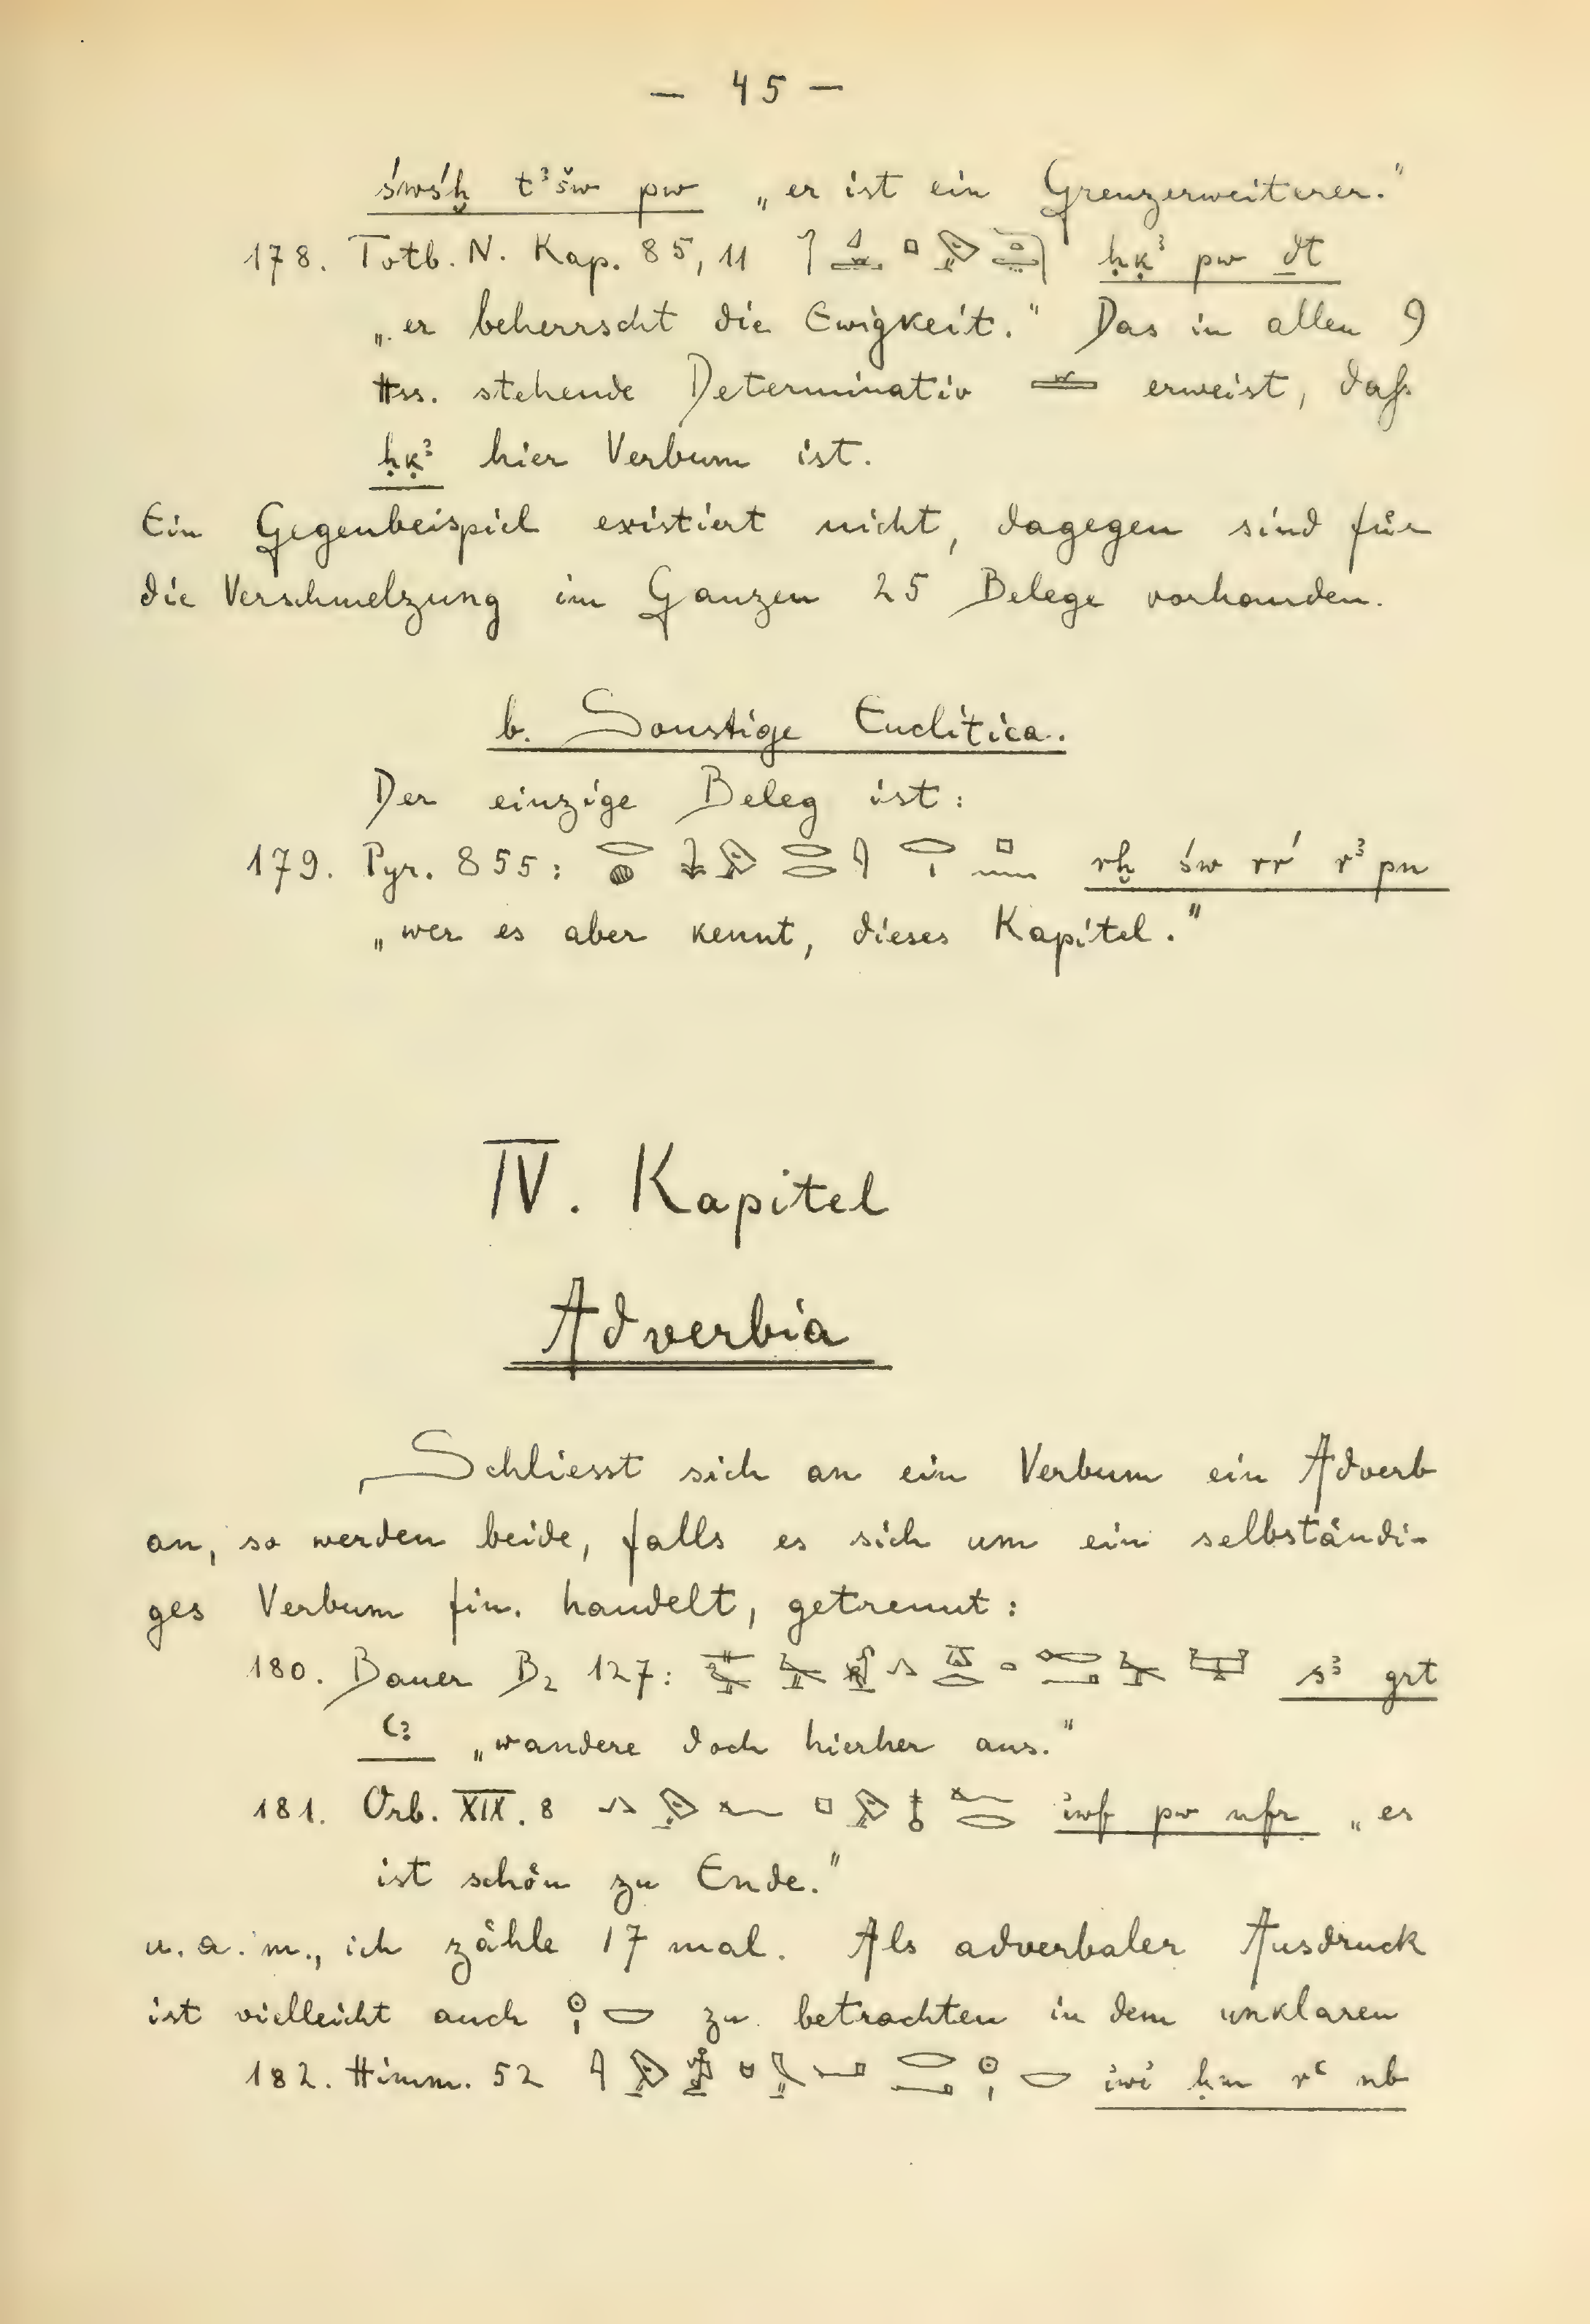 — 45 —
śwśḫ tꜣšw pw „er ist ein Grenzerweiterer."
178. Totb. N. Kap. 85, 11 ḥḳꜣ pw ḏt
„er beherrscht die Ewigkeit." Das in allen 9
Hss. stehende Determinativ erweist, daß
ḥḳꜣ hier Verbum ist.
Ein Gegenbeispiel existiert nicht, dagegen sind für
die Verschmelzung im Ganzen 25 Belege vorhanden.
b. Sonstige Enclitica.
Der einzige Beleg ist:
179. Pyr. 855: rḫ św rr' rꜣ pn
„wer es aber kennt, dieses Kapitel."
IV. Kapitel
Adverbia
Schliesst sich an ein Verbum ein Adverb
an, so werden beide, falls es sich um ein selbständi-
ges Verbum fin. handelt, getrennt:
180. Bauer B₂ 127: sꜣ grt
ꜥꜣ „wandere doch hierher aus."
181. Orb. XIX. 8 iwf pw nfr „er
ist schön zu Ende."
u. a. m., ich zähle 17 mal. Als adverbaler Ausdruck
ist vielleicht auch zu betrachten in dem unklaren
182. Himm. 52 iwi ḥm rꜥ nb